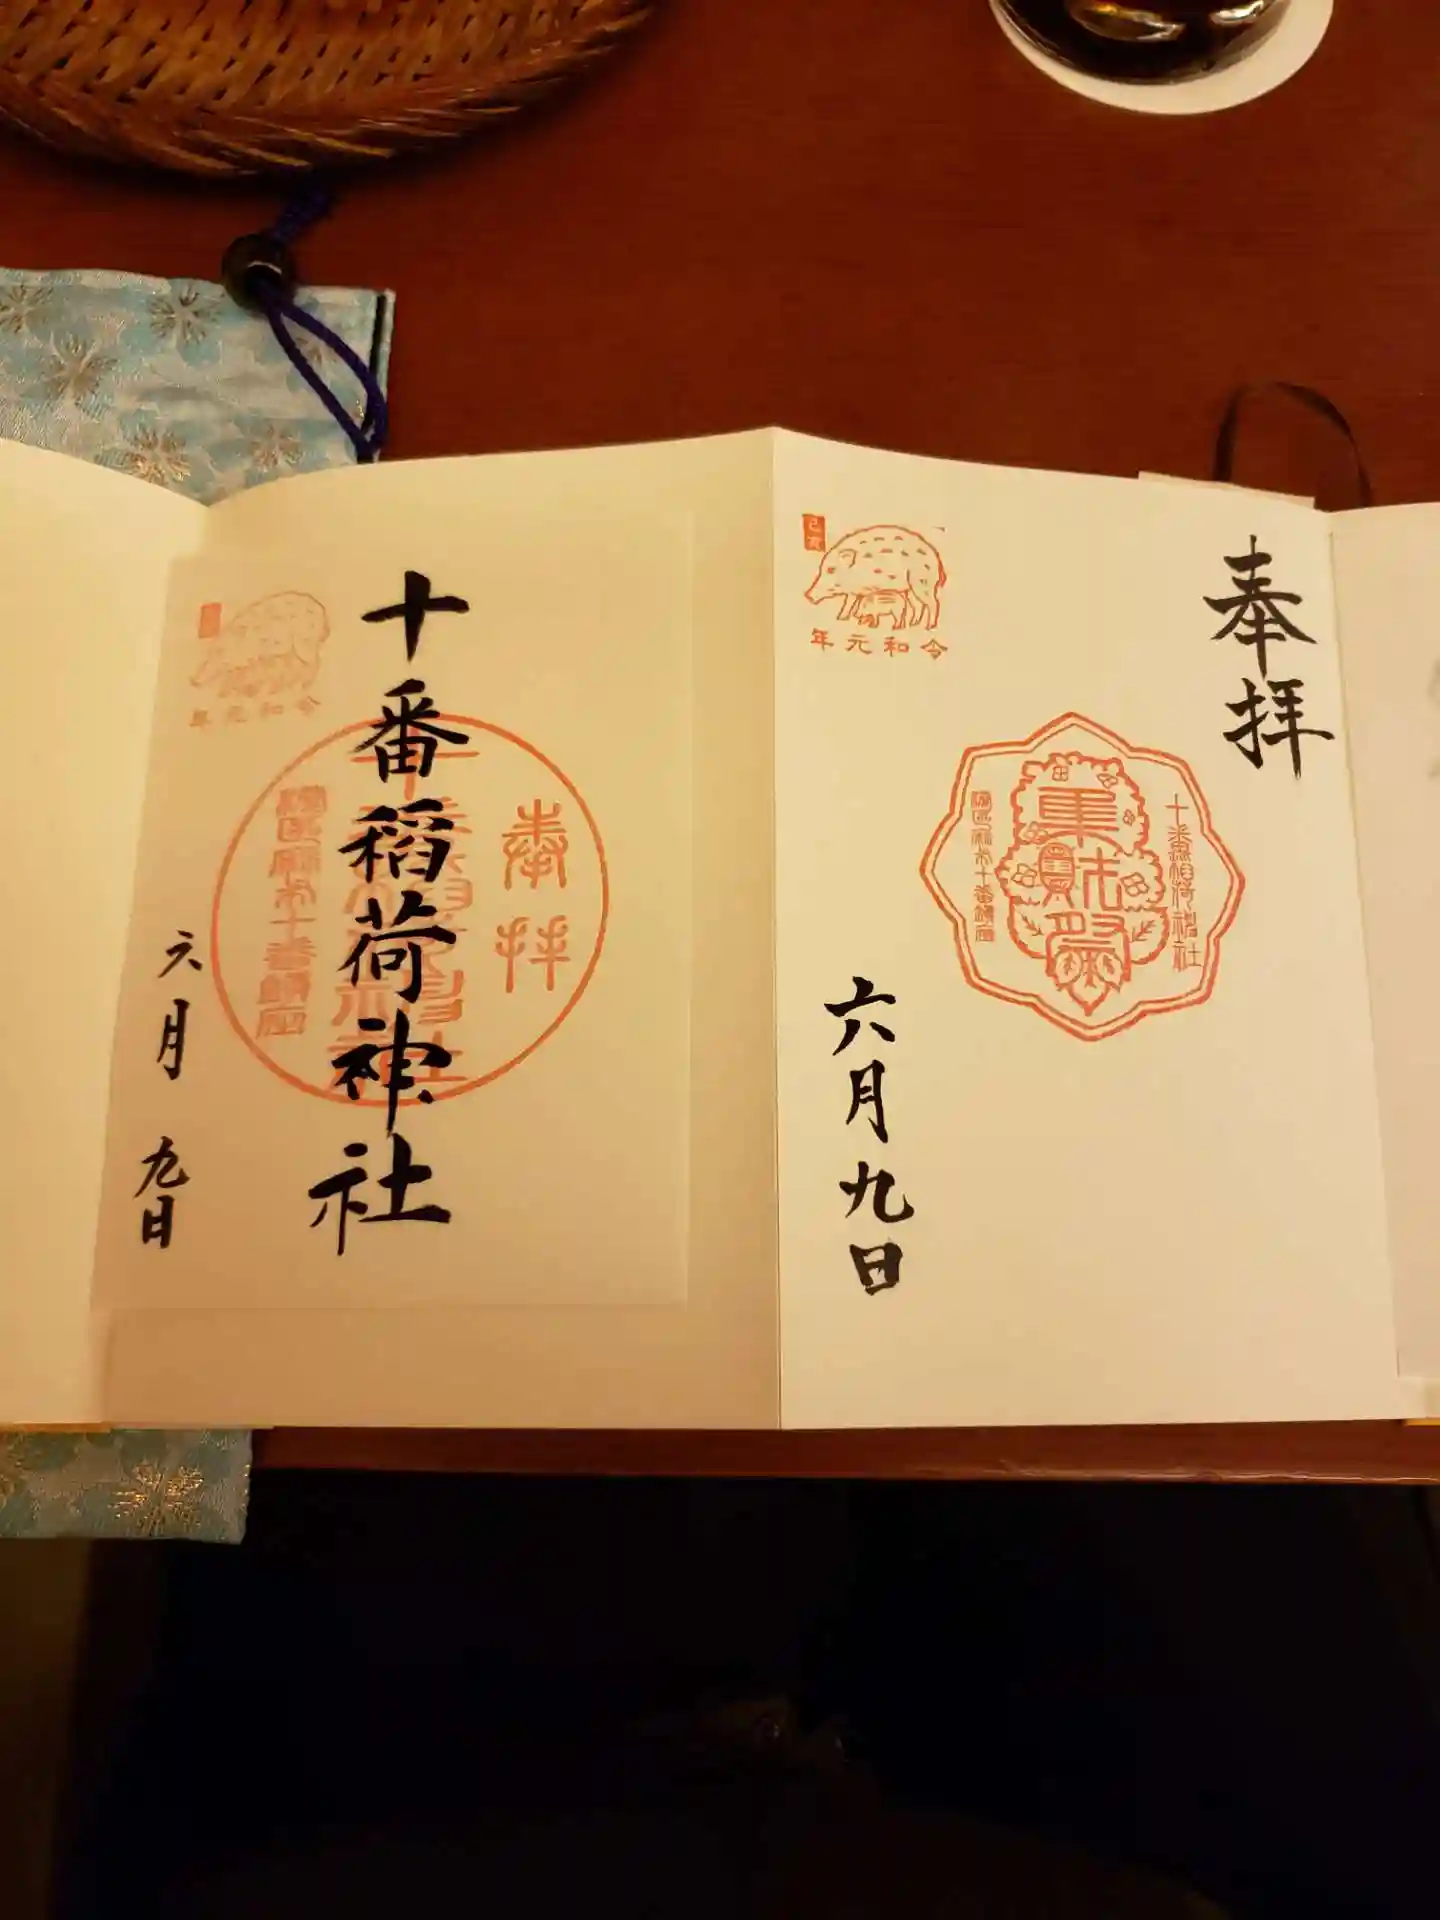 奉拝
十番稲荷神社
東財祭
港区麻布十番鎮座
己亥
令和元年
六月九日
奉拝
十番稲荷神社
港区麻布十番鎮座
令和元年
六月九日